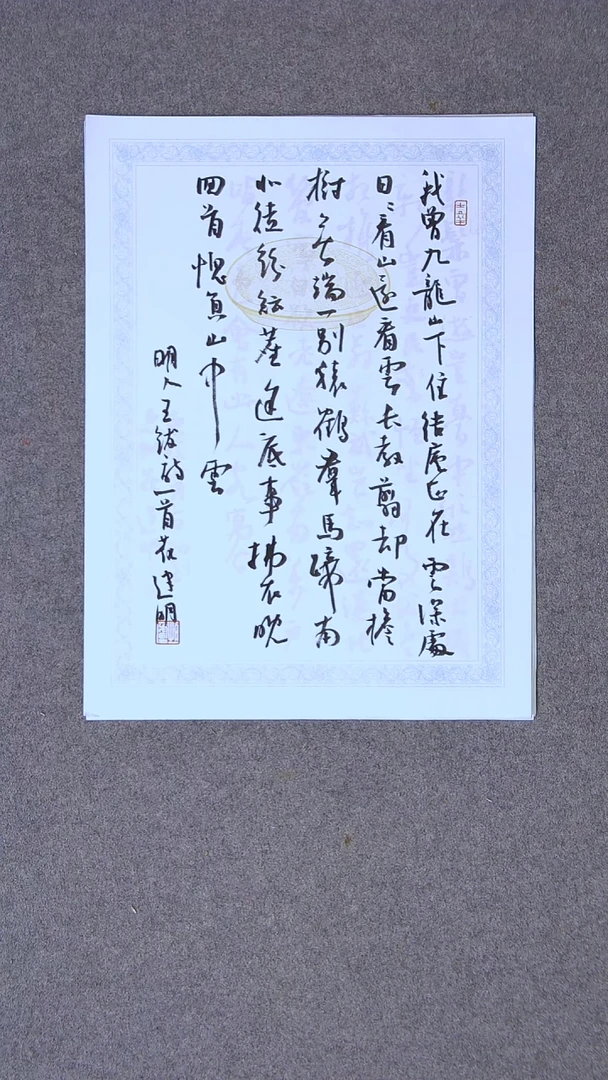 我曾九龍山下住結廬正在雲深處
日々看山還看雲長教翦却當檐
樹無端一別猿鶴羣馬蹄南
北徒紛紜塵途底事拂衣晚
回首愧負山中雲
明人王紱詩一首莊建明